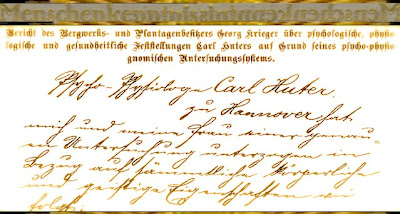 Bericht des Bergwerks- und Plantagenbesitzers Georg Krieger über psychologische, physio-
logische und gesundheitliche Feststellungen Carl Huters auf Grund seines psycho-physio-
gnomischen Untersuchungssystems.
Psycho-Physiologe Carl Huter
zu Hannover hat
mich und meine Frau einer genau-
en Untersuchung unterzogen in
Bezug auf sämmtliche körperliche
und geistige Eigenschaften wie
folgt: